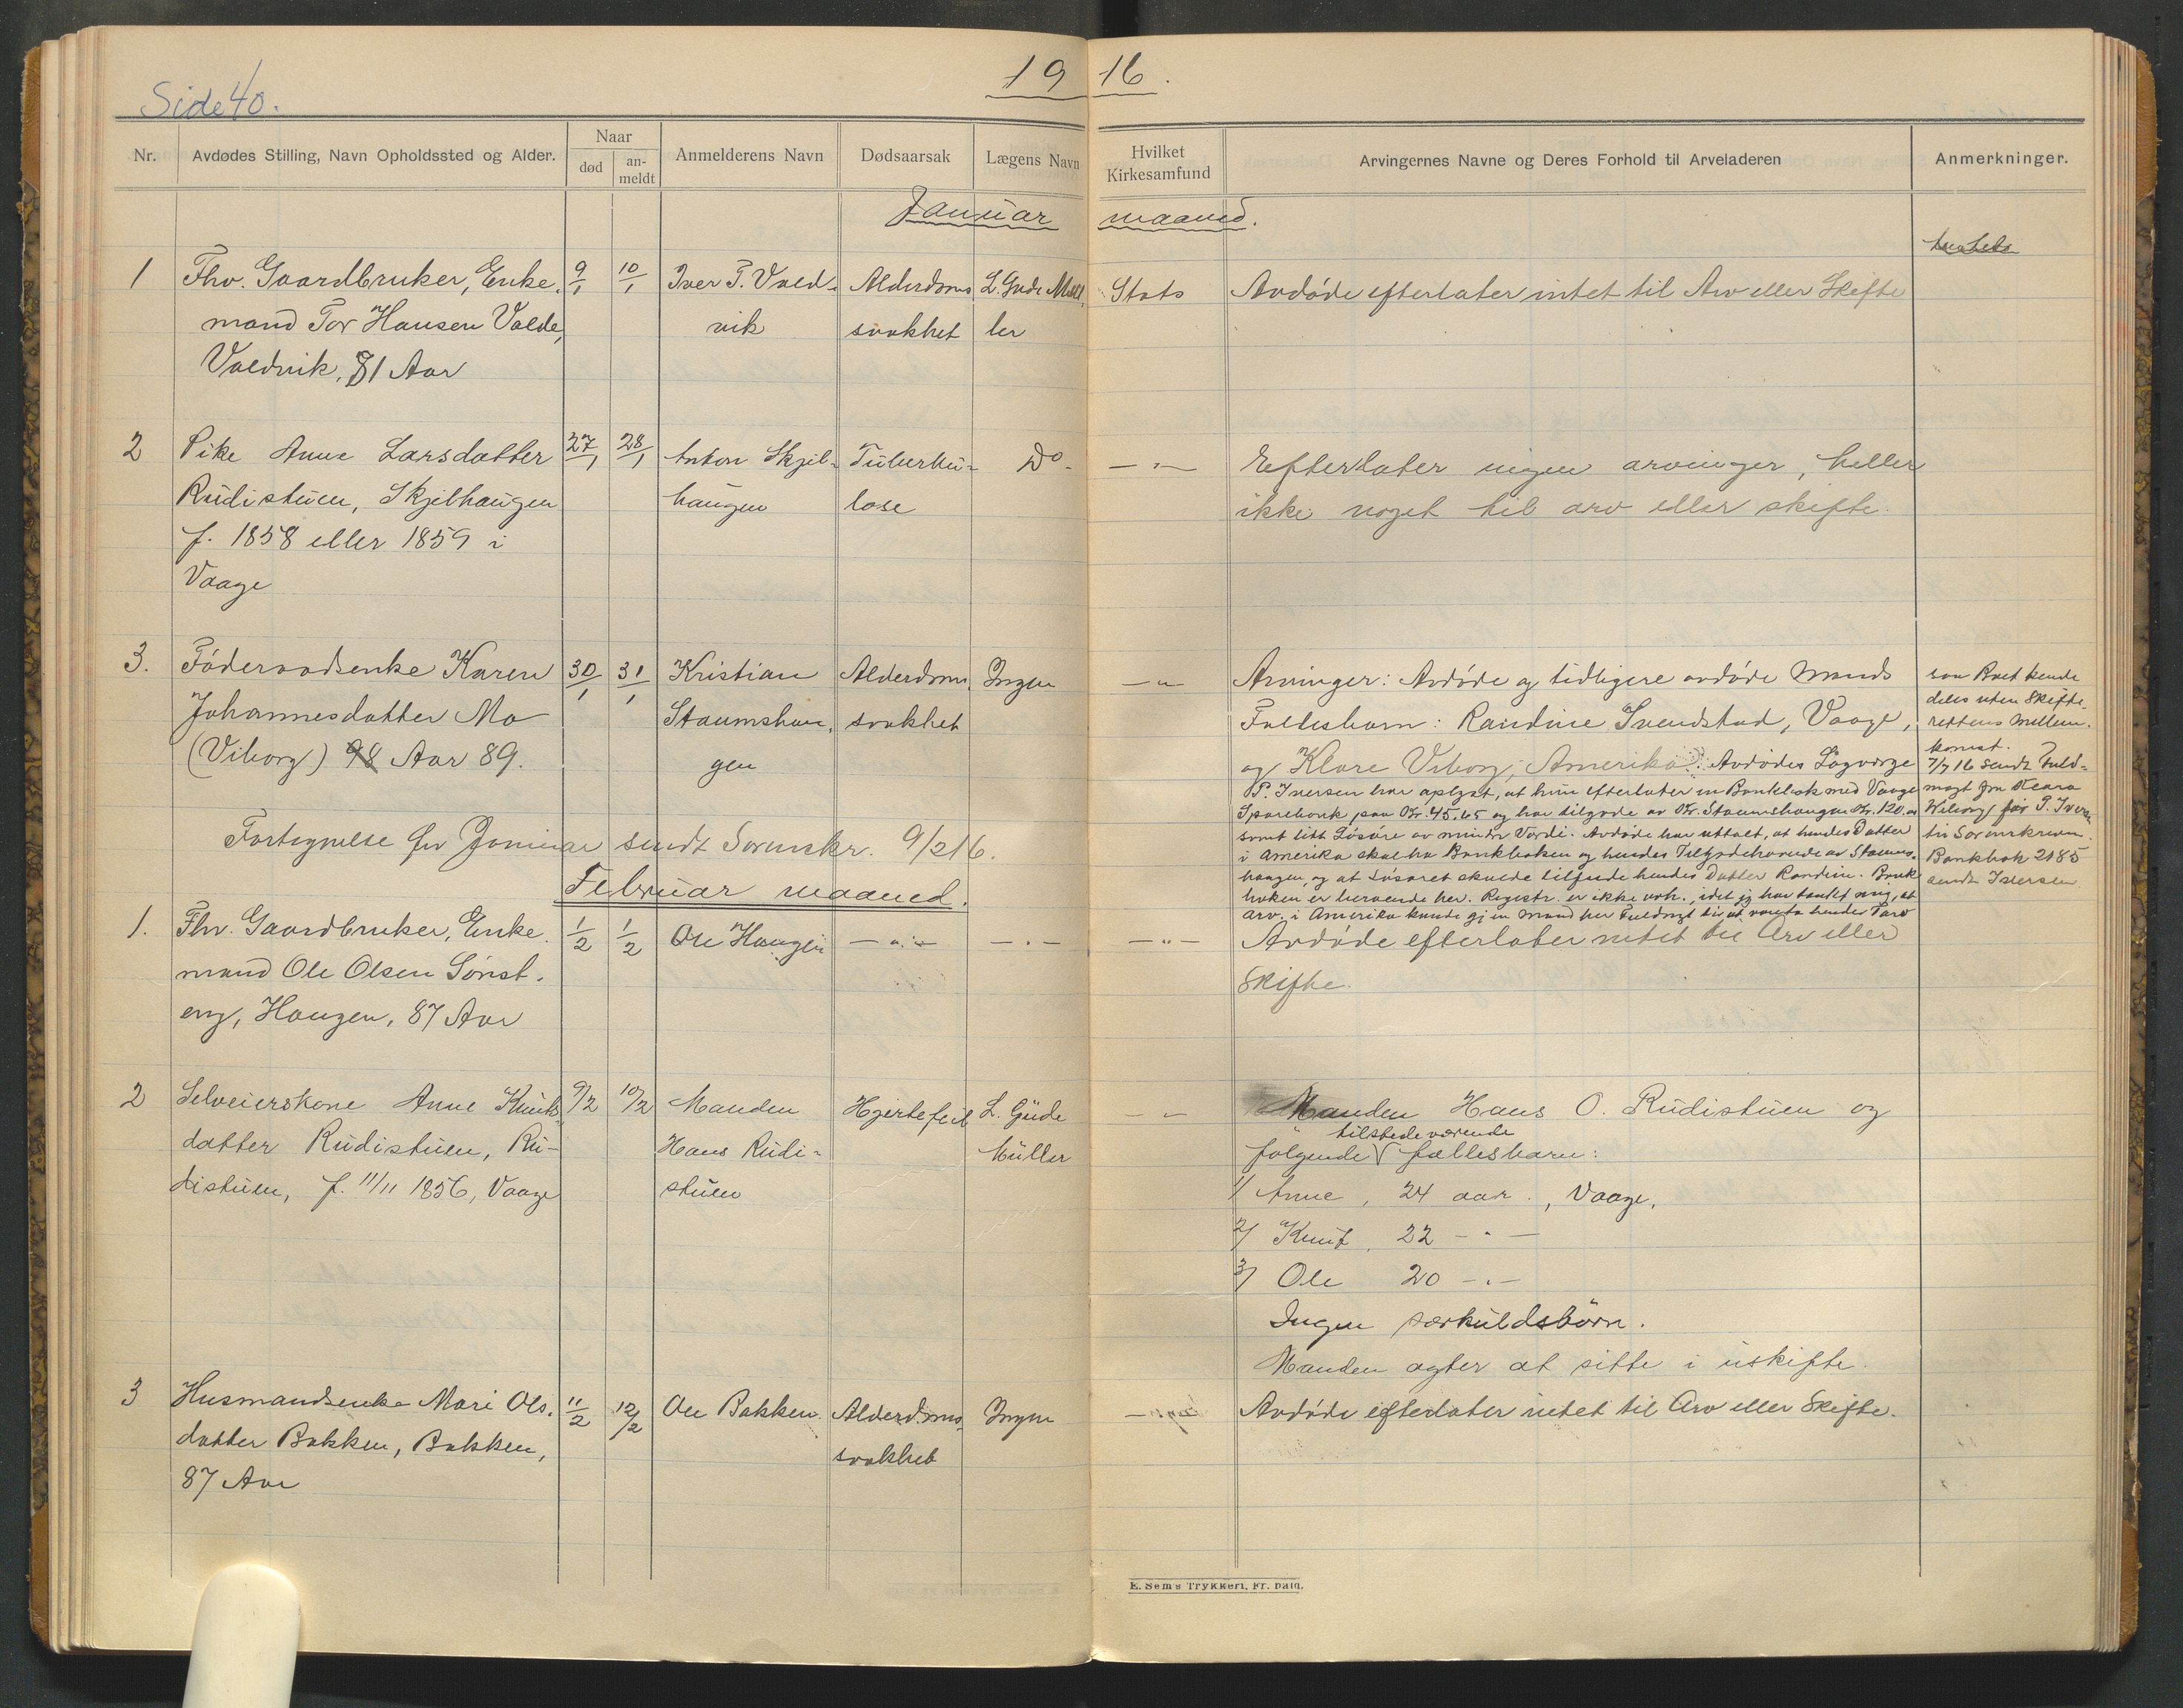 Side 40.
1916.
Nr.
Avdødes Stilling, Navn Opholdssted og Alder.
Naar
død
an-
meldt
Anmelderens Navn
Dødsaarsak
Lægens Navn
Hvilket
Kirkesamfund
Arvingernes Navne og Deres Forhold til Arveladeren
Anmerkninger.
Januar maaned.
1
Fhv. Gaardbruker, Enke-
mand Tor Hansen Valde,
Valdvik, 81 Aar
9/1
10/1
Iver T. Vald-
vik
Alderdoms
svakhet
L. Gude Møl-
ler
Stats
Avdøde efterlater intet til Arv eller Skifte
2
Pike Anne Larsdatter
Rudistuen, Skjelhaugen
f. 1858 eller 1859 i
Vaage
27/1
28/1
Anton Skjel-
haugen
Tuberku-
lose
Do-
— " —
Efterlater ingen arvinger, heller
ikke noget til arv eller skifte.
3.
Føderaadsenke Karen
Johannesdatter Mo
(Viborg) 98 Aar 89.
30/1
31/1
Kristian
Staumshau-
gen
Alderdoms
svakhet
Ingen
— " —
Arvinger: Avdøde og tidligere avdøde Mands
Fællesbarn: Randine Svendstad, Vaage,
og Klare Viborg, Amerika. Avdødes Lagværge
P. Iversen har oplyst, at hun efterlater en Bankbok med Vaage
Sparebank paa Kr. 45.65 og har tilgode av Kr. Staumshaugen Kr. 120.00
samt litt Løsøre av mindre Værdi. Avdøde har uttalt, at hendes Datter
i Amerika skal ha Bankboken og hendes Tilgodehavende av Staums-
haugen og at Løsøret skulde tilfalde hendes Datter Randine. Bank
boken er beroende her. Registr. er ikke avh., idet jeg har tænkt mig, at
arv. i Amerika kunde gi en Mand her Fuldmgt til at vareta hendes Tarv
deles uten Skifte-
rettens Mellem-
komst.
7/7 16 sendt Fuld-
magt fra Klara
Wiborg for P. Iversen
til Sorenskriveren.
Bankbok 2185
sendt Iversen.
Fortegnelse for Januar sendt Sorenskr. 9/2 16.
Februar maaned.
1.
Fhv. Gaardbruker, Enke-
mand Ole Olsen Sønst-
eng, Haugen, 87 Aar
1/2
1/2
Ole Haugen
— " —
— " —
— " —
Avdøde efterlater intet til Arv eller
Skifte.
2
Selveierskone Anne Knuts-
datter Rudistuen, Ru-
distuen, f. 11/11 1856, Vaage
9/2
10/2
Manden
Hans Rudi-
stuen
Hjertefeil
L. Gude
Müller
— " —
Manden Hans O. Rudistuen og
tilstedeværende
følgende fællesbarn:
1/ Anne, 24 aar., Vaage.
2/ Knut, 22 — " —
3/ Ole 20 — " —
Ingen særkuldsbørn.
Manden agter at sitte i uskifte.
3
Husmandsenke Mari Ols-
datter Bakken, Bakken,
87 Aar
11/2
12/2
Ole Bakken
Alderdoms
svakhet
Ingen
— " —
Avdøde efterlater intet til Arv eller Skifte.
E. Sem's Trykkeri, Fr.hald.